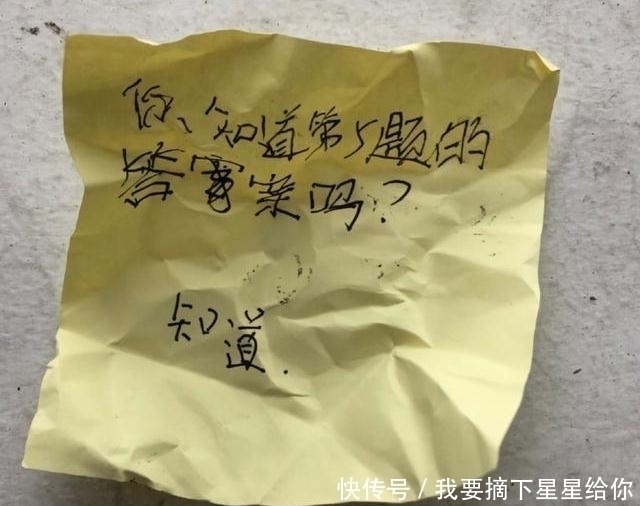 你知道第5题的
答案吗？
知道.
快传号/我要摘下星星给你